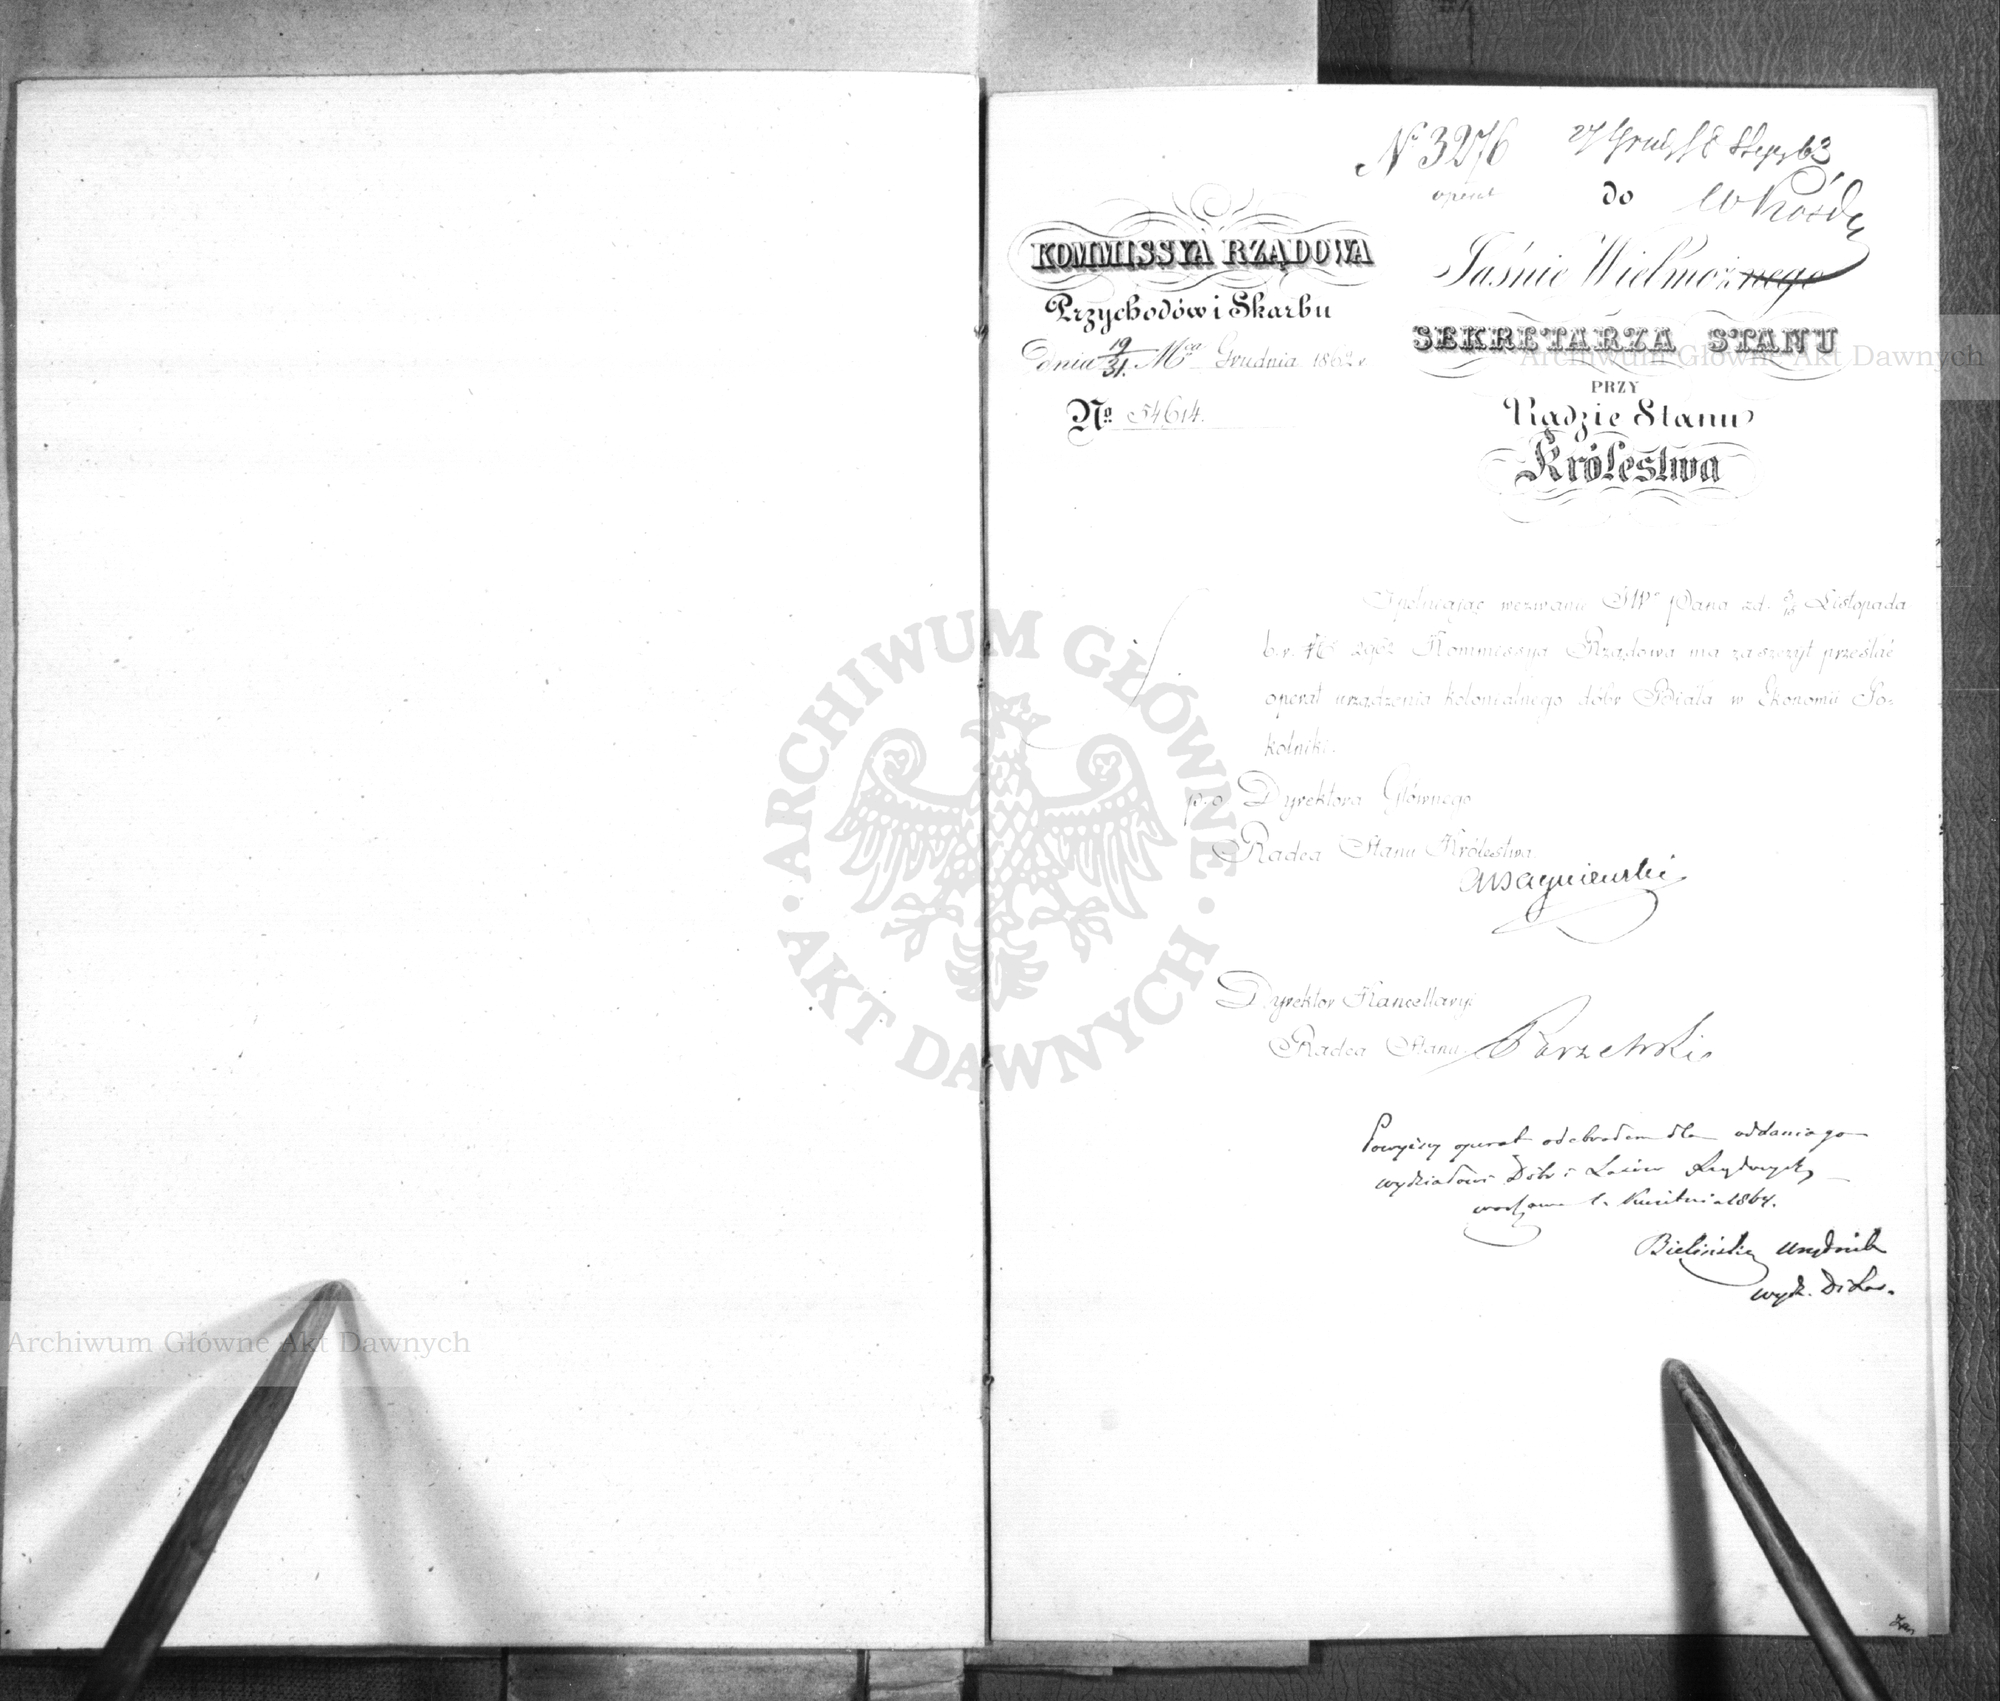 № 3276
operat
do
KOMMISSYA RZĄDOWA
Przychodów i Skarbu
Dnia 19/31 Mca Grudnia 1862 r
No 54614.
Jaśnie Wielmożnego
SEKRETARZA STANU
PRZY
Radzie Stanu
Królestwa
Spełniając wezwanie JWo Pana z d. 3/15 Listopada
b. r. No 2962 Kommissya Rządowa ma zaszczyt przesłać
operat urządzenia kolonialnego dóbr Biała w Ekonomii So-
kolniki.
p.o Dyrektora Głównego
Radca Stanu Królestwa
Dyrektor Kancellaryi
Radca Stanu
Powyższy operat odebrałem dla oddania go
wydziałowi Dóbr i Lasów Rządowych
Kwietnia 1864.
Bieliński urzędnik
wydz. D i Las.
ARCHIWUM GŁÓWNE
AKT DAWNYCH
Archiwum Główne Akt Dawnych
Archiwum Główne Akt Dawnych